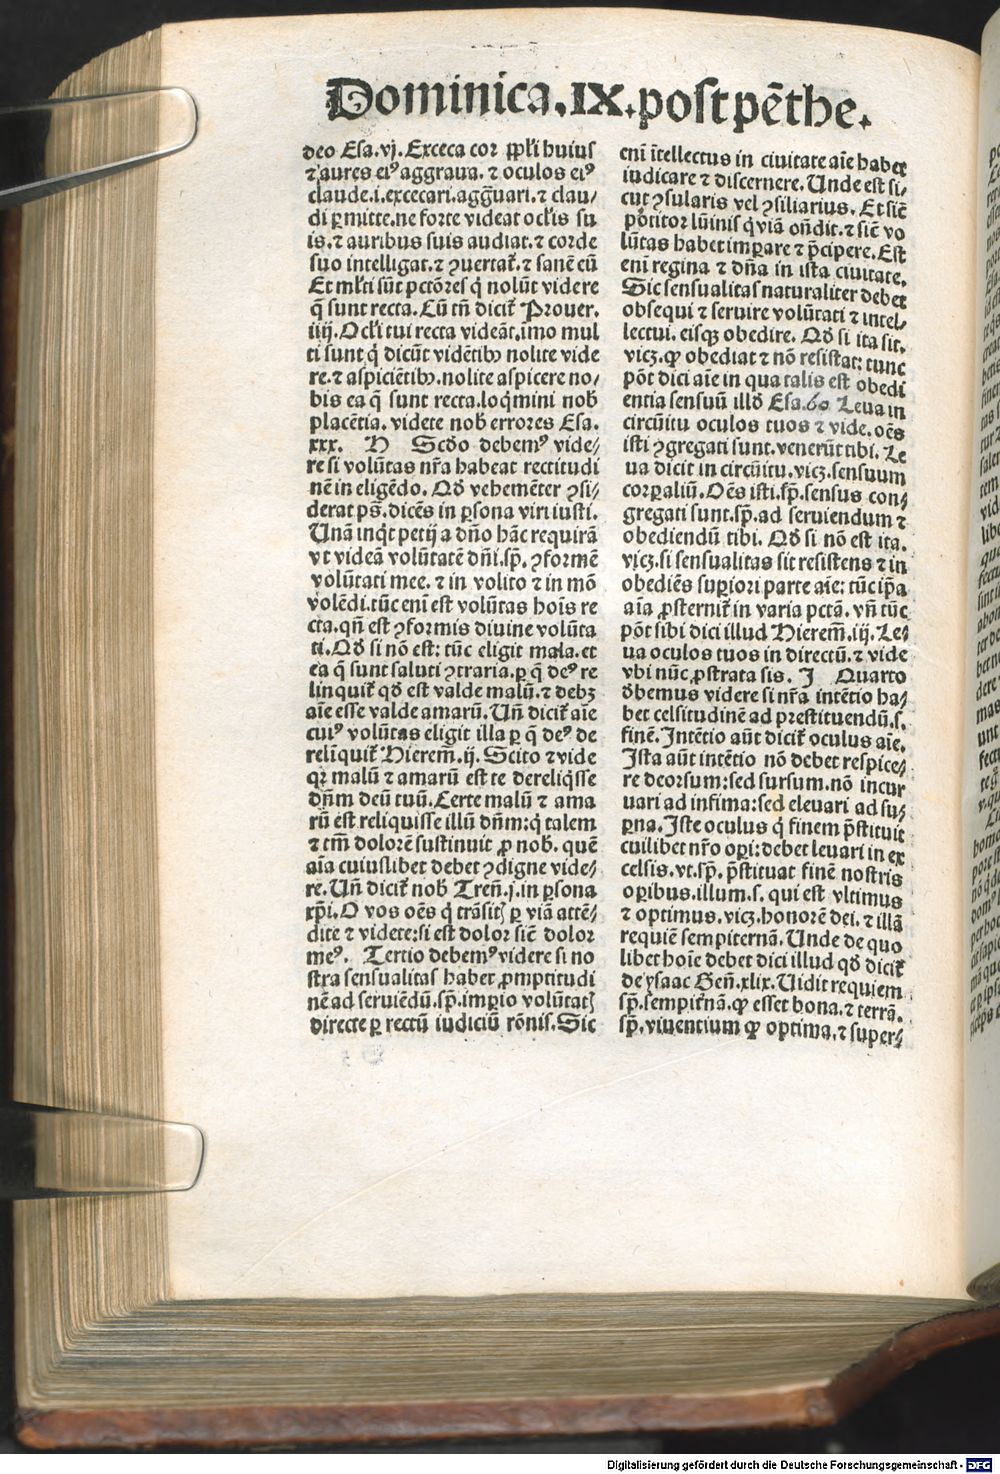 Dominica.IX.post pēthe.
deo Esa.vj. Exceca cor ppl'i huius
⁊ aures ei⁹ aggraua. ⁊ oculos ei⁹
claude.i.excecari.agguari.⁊ clau/
di ꝑmitte.ne forte videat ocl'is su
is.⁊ auribus suis audiat.⁊ corde
suo intelligat.⁊ ꝯuertat᷑.⁊ sanē eū
Et ml'ti sūt pctōres q̇ nolūt videre
q̄ sunt recta. Cū tn̄ dicit᷑ Prouer.
iiij. Ocl'i tui recta videāt.imo mul
ti sunt q̇ dicūt vidētibꝰ nolite vide
re.⁊ aspiciētibꝰ.nolite aspicere no/
bis ea q̄ sunt recta.loq̇mini nob̄
placētia. videte nob̄ errores Esa.
xxx. H Scd̄o debem⁹ vide/
re si volūtas nr̄a habeat rectitudi
nē in eligēdo. Qd̄ vehemēter ꝯsi/
derat ps̄. dicēs in ꝑsona viri iusti.
Unā inq̇t petij a dn̄o hāc requirā
vt videā volūtatē dn̄i.sp̄. ꝯformē
volūtati mee. ⁊ in volito ⁊ in mō
volēdi.tūc enī est volūtas hoīs re
cta.qn̄ est ꝯformis diuine volūta
ti. Qd̄ si nō est: tūc eligit mala.et
ea q̄ sunt saluti ꝯtraria.ꝑ q̄ de⁹ re
linquit᷑ qd̄ est valde malū.⁊ debꝫ
aīe esse valde amarū. Un̄ dicit᷑ aīe
cui⁹ volūtas eligit illa ꝑ q̄ de⁹ de
relīquit᷑ Hierem̄.ij. Scito ⁊ vide
qꝛ malū ⁊ amarū est te dereliq̇sse
dn̄m deū tuū. Certe malū ⁊ ama
rū est reliquisse illū dn̄m: q̇ talem
⁊ tm̄ dolorē sustinuit ꝓ nob̄. quē
aīa cuiuslibet debet ꝯdigne vide/
re. Un̄ dicit᷑ nob̄ Tren̄.j.in ꝑsona
xp̄i. O vos oēs q̇ trāsitꝭ ꝑ viā attē/
dite ⁊ videte: si est dolor sic̄ dolor
me⁹. Tertio debem⁹ videre si no
stra sensualitas habet ꝓmptitudi
nē ad seruiēdū.sp̄.imꝑio volūtatꝭ
directe ꝑ rectū iudiciū rōnis. Sic
enī ītellectus in ciuitate aīe habet
iudicare ⁊ discernere. Unde est si/
cut ꝯsularis vel ꝯsiliarius. Et sic̄
portitor lūinis q̇ viā on̄dit.⁊ sic̄ vo
lūtas habet imꝑare ⁊ p̄cipere. Est
enī regina ⁊ dn̄a in ista ciuitate.
Sic sensualitas naturaliter debet
obsequi ⁊ seruire volūtati ⁊ intel/
lectui. eisqꝫ obedire. Qd̄ si ita sit.
vicꝫ.ꝙ obediat ⁊ nō resistat: tunc
pōt dici aīe in qua talis est obedi
entia sensuū illd̄ Esa.60 Leua in
circūitu oculos tuos ⁊ vide. oēs
isti ꝯgregati sunt. venerūt tibi. Le
ua dicit in circūitu.vicꝫ.sensuum
corꝑaliū. Oēs isti.sp̄.sensus con/
gregati sunt.sp̄.ad seruiendum ⁊
obediendū tibi. Qd̄ si nō est ita.
vicꝫ.si sensualitas sit resistens ⁊ in
obediēs suꝑiori parte aīe: tūc ip̄a
aīa ꝓsternit᷑ in varia pctā. vn̄ tūc
pōt sibi dici illud Hierem̄.iij. Le/
ua oculos tuos in directū.⁊ vide
vbi nūc ꝓstrata sis. I Quarto
d̄bemus videre si nr̄a intētio ha/
bet celsitudinē ad prestituendū.s.
finē. Intētio aūt dicit᷑ oculus aīe.
Ista aūt intētio nō debet respice/
re deorsum: sed sursum. nō incur
uari ad infima: sed eleuari ad su/
ꝑna. Iste oculus q̇ finem p̄stituit
cuilibet nr̄o oꝑi: debet leuari in ex
celsis.vt.sp̄. p̄stituat finē nostris
oꝑibus.illum.s. qui est vltimus
⁊ optimus.vicꝫ.honorē dei.⁊ illā
requiē sempiternā. Unde de quo
libet hoīe debet dici illud qd̄ dicit᷑
de ysaac Gen̄.xlix. Uidit requiem
sp̄.sempit᷑nā.ꝙ esset bona.⁊ terrā.
sp̄.viuentium ꝙ optima.⁊ super/
Digitalisierung gefördert durch die Deutsche Forschungsgemeinschaft - DFG